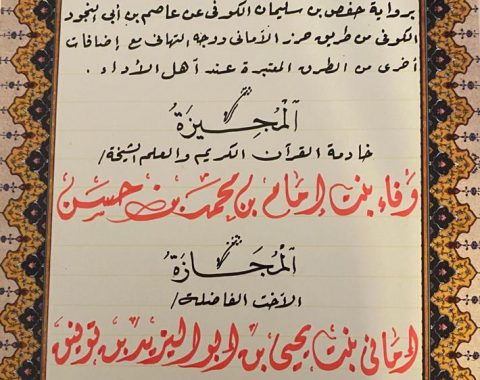 برواية حفص بن سليمان الكوفي عن عاصم بن أبي النجود
الكوفي من طريق حرز الأماني ووجه التهاني مع إضافات
أخرى من الطرق المعتبرة عند أهل الأداء .
الْمُجِيزَةُ
خادمة القرآن الكريم والعلم الشيخة/
وفاء بنت إمام بن محمد بن حسن
الْمُجَازَةُ
الأخت الفاضلة/
أماني بنت يحيى بن ابو اليزيد بن توفيق